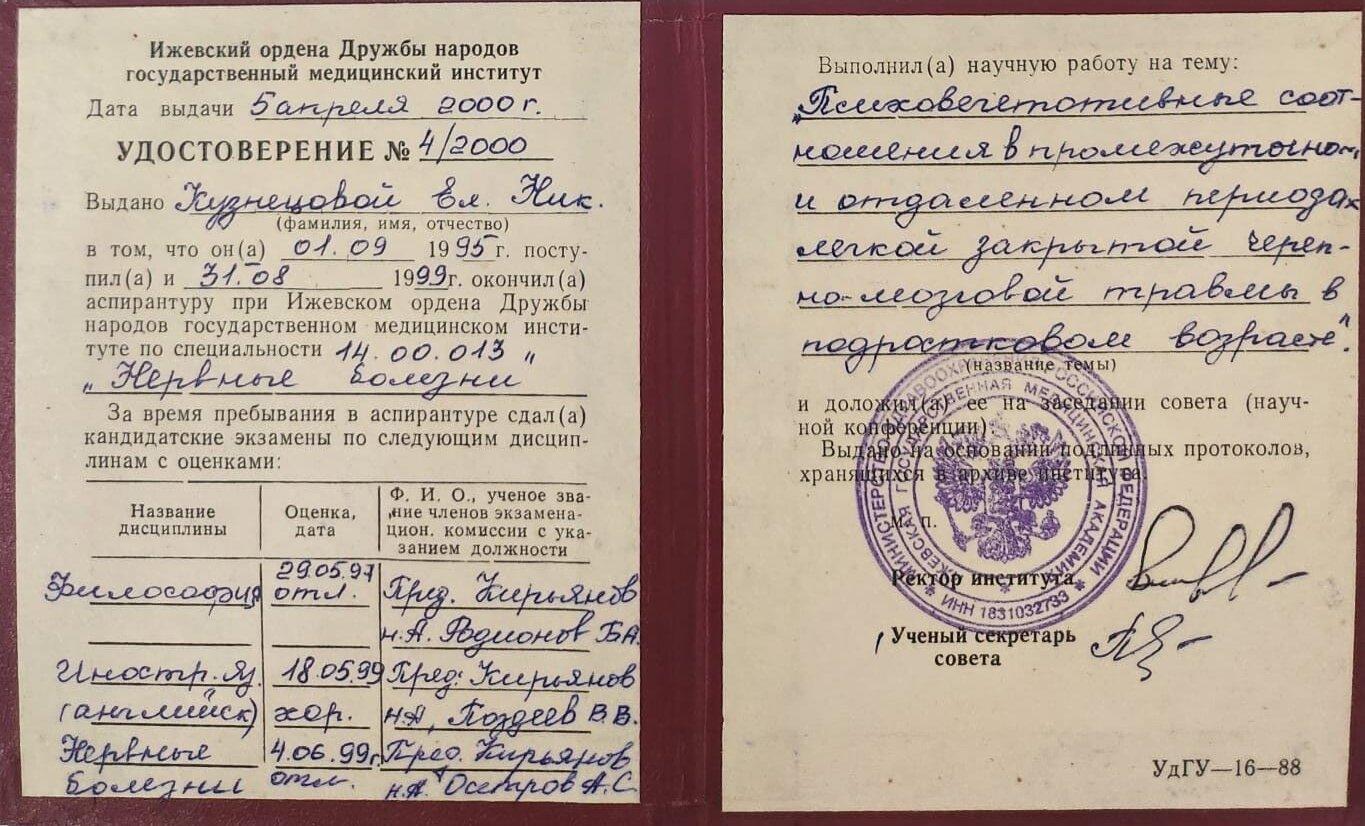 Ижевский ордена Дружбы народов
государственный медицинский институт
Дата выдачи 5 апреля 2000 г.
УДОСТОВЕРЕНИЕ № 4/2000
Выдано Кузнецовой Ел. Ник.
(фамилия, имя, отчество)
в том, что он(а) 01.09 1995 г. посту-
пил(а) и 31.08 1999г. окончил(а)
аспирантуру при Ижевском ордена Дружбы
народов государственном медицинском инсти-
туте по специальности 14.00.013 „
„Нервные болезни
За время пребывания в аспирантуре сдал(а)
кандидатские экзамены по следующим дисцип-
линам с оценками:
Название дисциплины
Оценка, дата
Ф. И. О., ученое зва-
ние членов экзамена-
цион. комиссии с ука-
занием должности
Философия 29.05.97 отл. Пред. Кирьянов
н.А. Родионов Б.А.
Иностр. яз. 18.05.99 Пред: Кирьянов
(английск) хор. н.А, Поздеев В.В.
Нервные 4.06.99г Пред. Кирьянов
болезни отл. н.А. Осетров А.С.
Выполнил(а) научную работу на тему:
„Психовегетативные соот-
ношения в промежуточном
и отдаленном периодах
легкой закрытой череп-
но-мозговой травмы в
подростковом возрасте".
(название темы)
и доложил(а) ее на заседании совета (науч-
ной конференции).
Выдано на основании подлинных протоколов,
хранящихся в архиве института.
М. п.
Ректор института
Ученый секретарь
совета
МИНИСТЕРСТВО ЗДРАВООХРАНЕНИЯ РОССИЙСКОЙ ФЕДЕРАЦИИ
ИЖЕВСКАЯ ГОСУДАРСТВЕННАЯ МЕДИЦИНСКАЯ АКАДЕМИЯ
* ИНН 1831032733 *
УдГУ—16—88